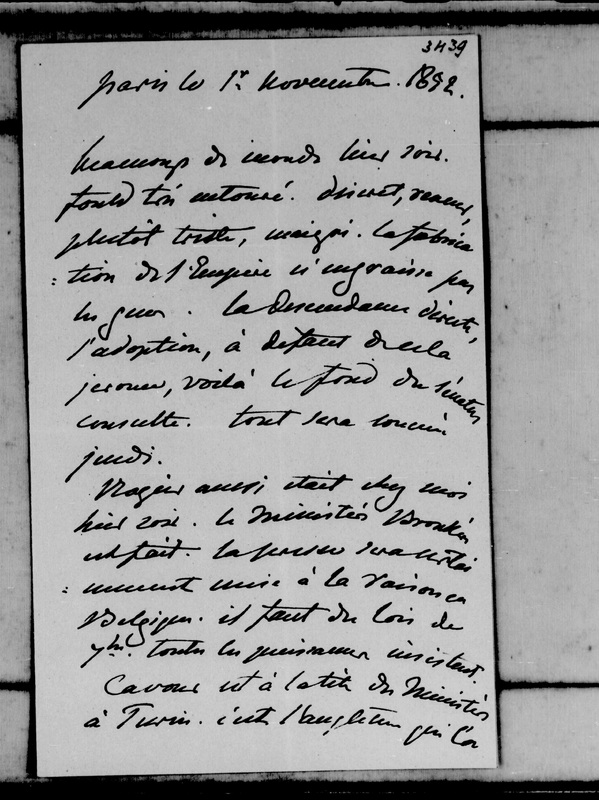 3439
Paris le 1er novembre. 1852.
beaucoup de monde hier soir.
fould très entouré. discret,
plutôt triste, maigri. la fabrica
=tion de l'Empire n'engraisse pas
les gens. la descendance directe,
l'adoption, à défaut de cela
jerome, voilà le fond du sénatus
consulte. tout sera terminé
jeudi.
Rogier aussi était chez moi
hier soir. le ministère Brouckère
est fait. la presse sera
=ment mise à la raison en
Belgique. il faut des lois de
7bre. toutes les puissances insistent.
Cavour est à la tête du Ministère
à Turin. c'est l'angleterre qui l'a